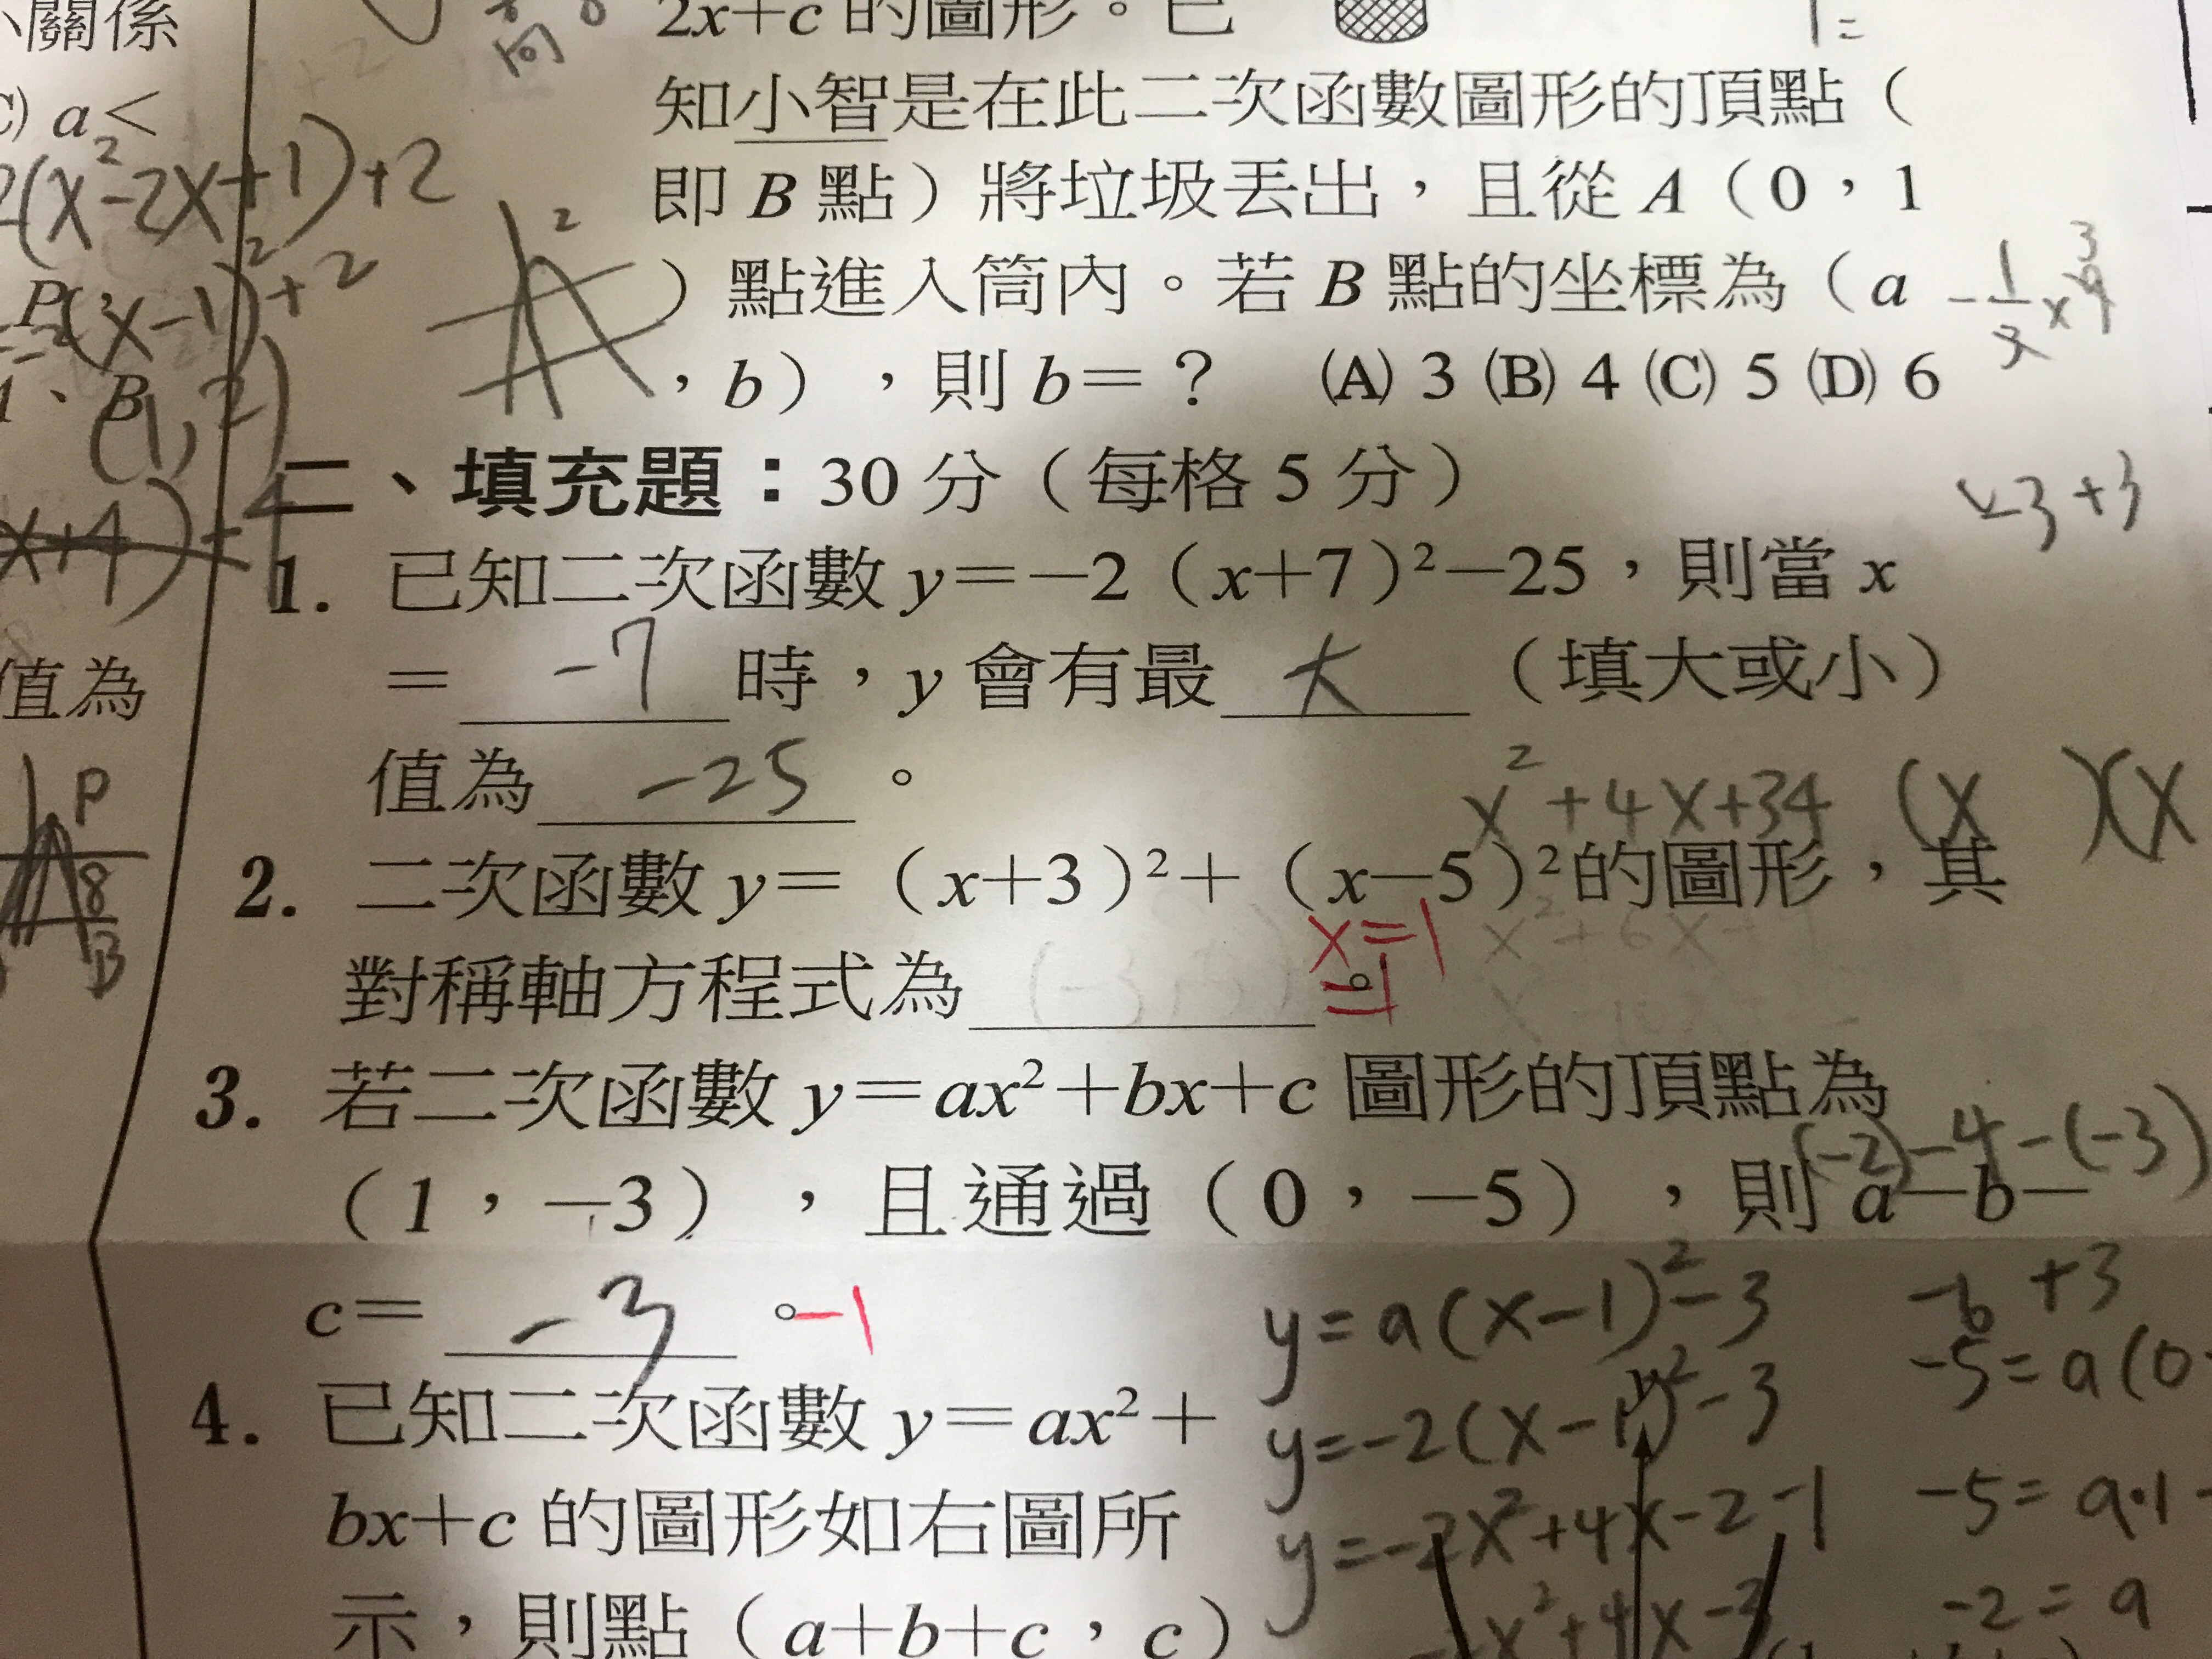 、關係
2x+c 的圖形。已
知小智是在此二次函數圖形的頂點（
即 B 點）將垃圾丟出，且從 A（0，1
）點進入筒內。若 B 點的坐標為（a
，b），則 b=？ (A) 3 (B) 4 (C) 5 (D) 6
C) a<
(x²-2x+1)+2
(x-1)²+2
(1,2)
值為
P
8
B
-3+3
二、填充題：30 分（每格 5 分）
1. 已知二次函數 y=-2（x+7）²-25，則當 x
= -7 時，y 會有最 大 （填大或小）
值為 -25 。
x²+4x+34 (x )(x
2. 二次函數 y=（x+3）²+（x-5）²的圖形，其
對稱軸方程式為 。
x=1
=1
3. 若二次函數 y=ax²+bx+c 圖形的頂點為
（1，-3），且通過（0，-5），則 a-b-
(-2)-4-(-3)
c= -3 。 -1
-6 +3
y=a(x-1)²-3
-5=a(0-
y=-2(x-1)²-3
y=-2x²+4x-2-1
-5=a·1-
-2=a
4. 已知二次函數 y=ax²+
bx+c 的圖形如右圖所
示，則點（a+b+c，c）